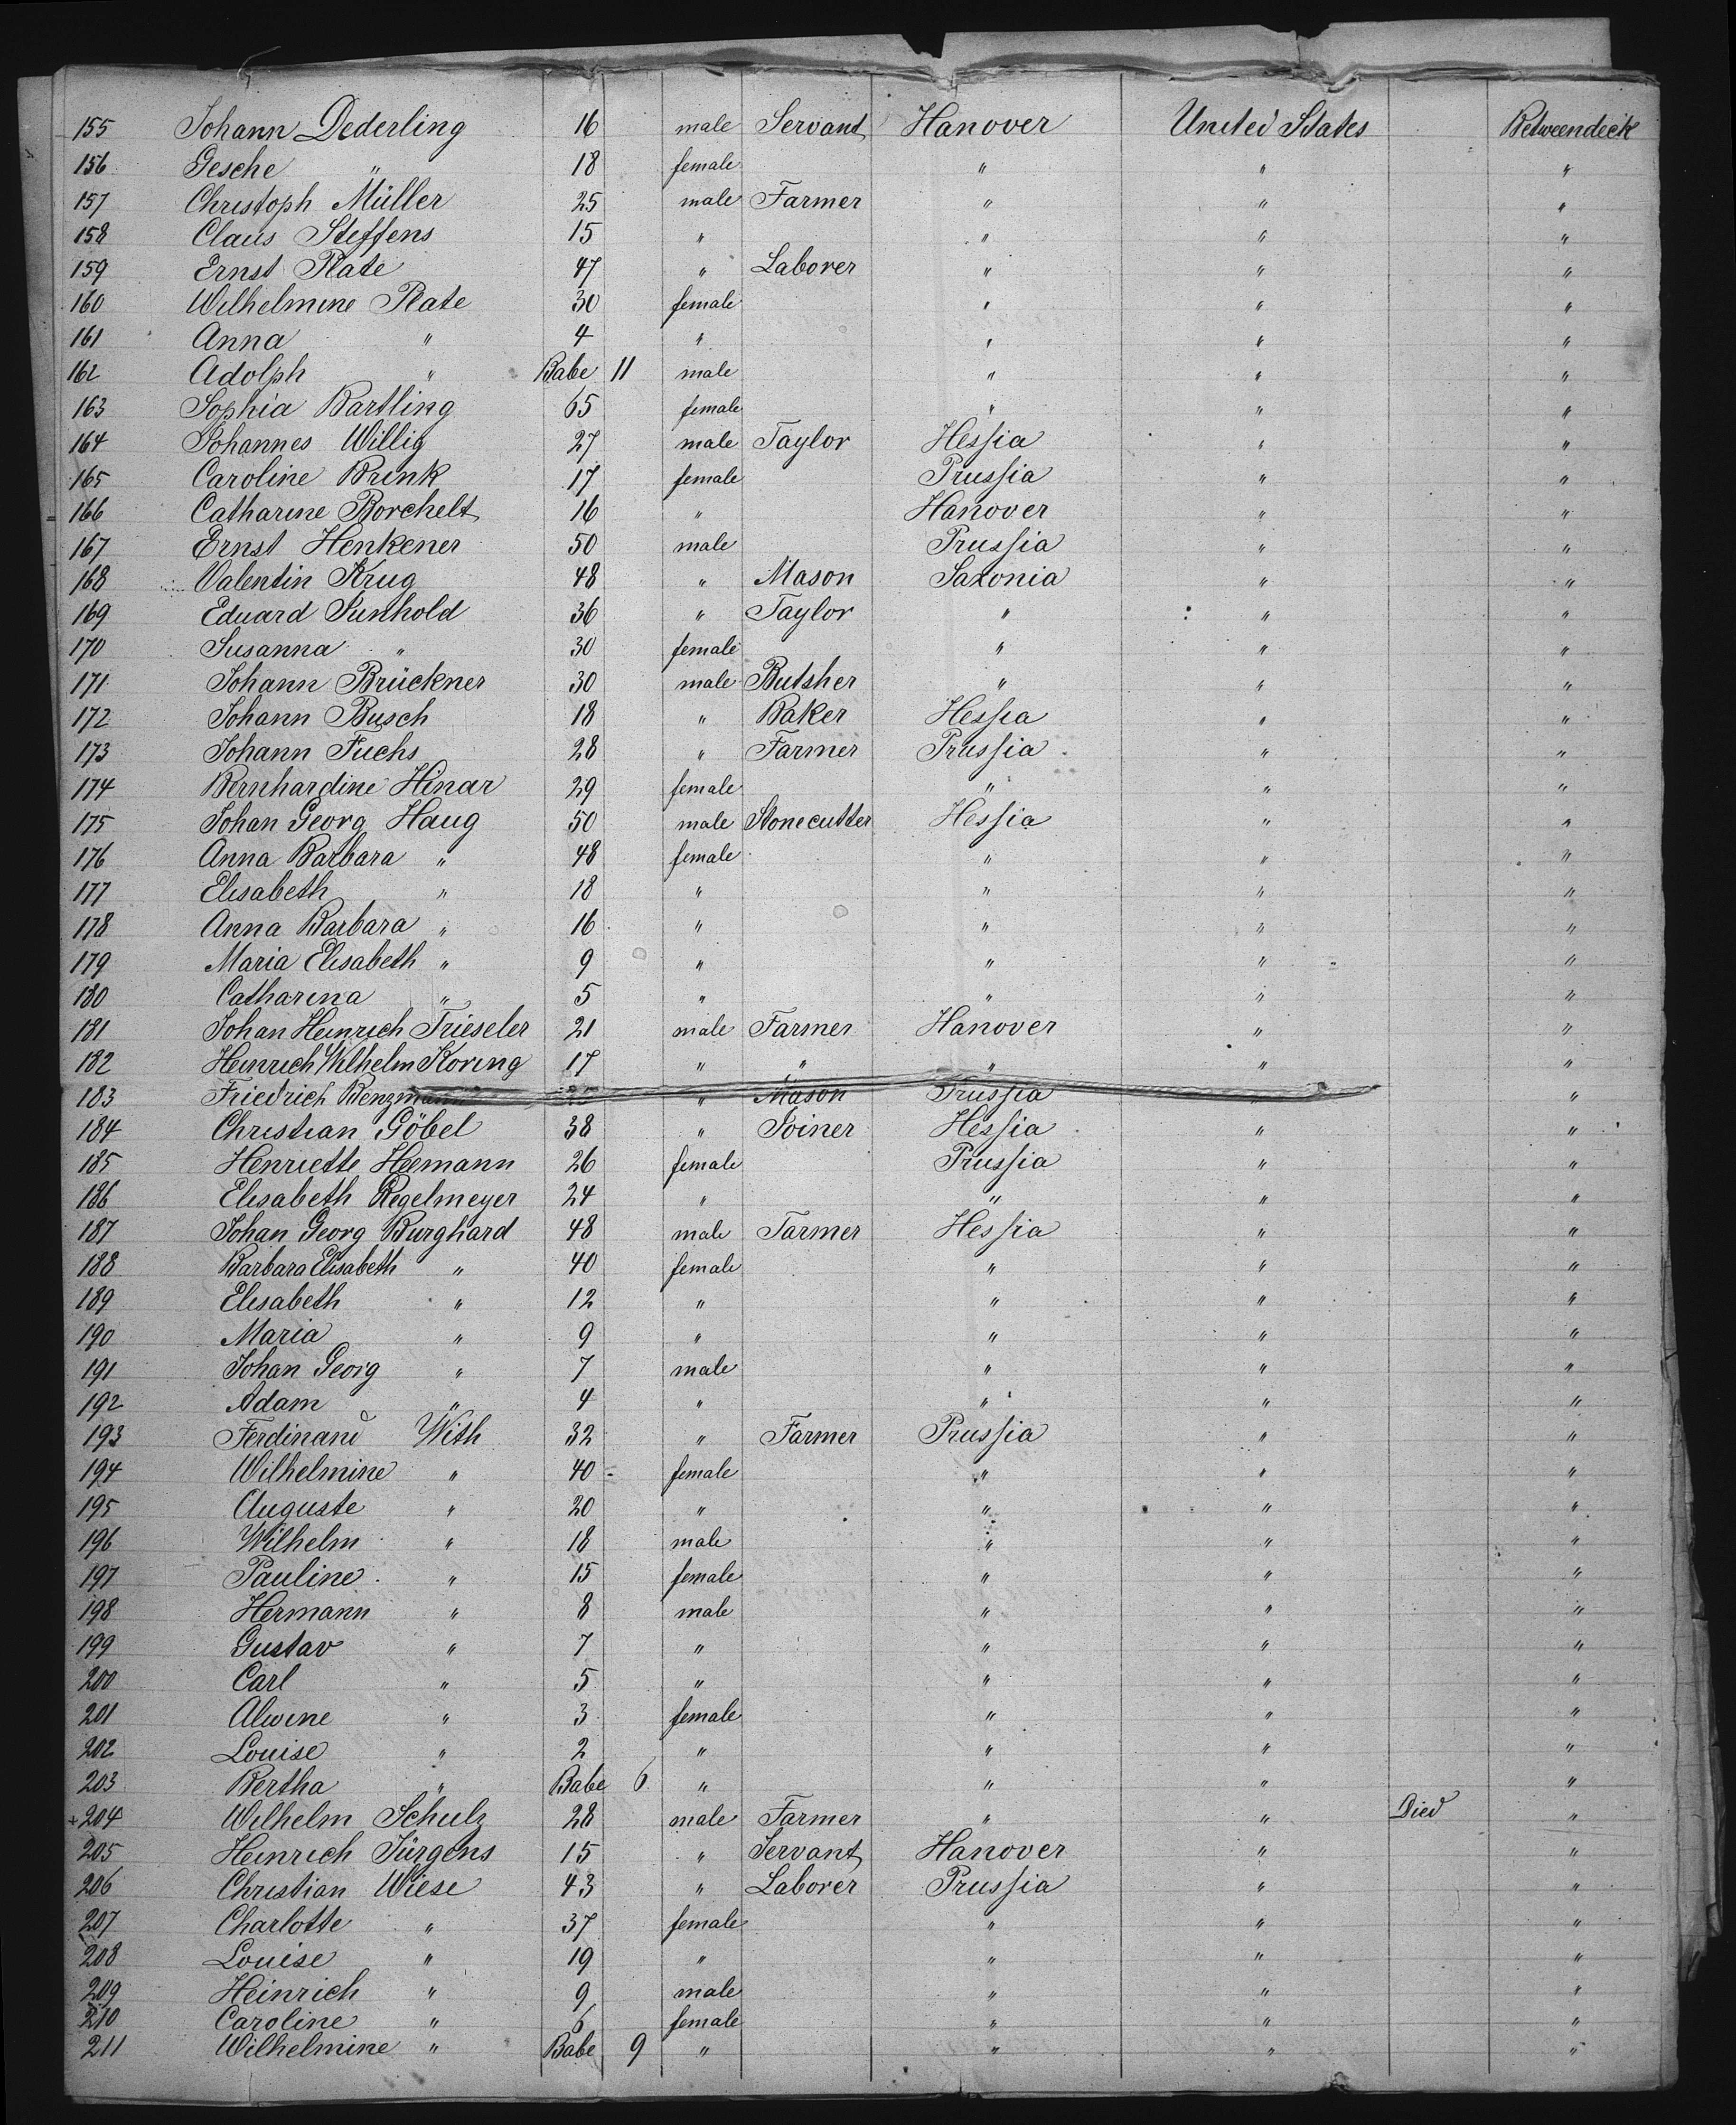 155 Johann Dederling 16 male Servant Hanover United States Betweendeck
156 Gesche " 18 female " " "
157 Christoph Müller 25 male Farmer " " "
158 Claus Steffens 15 " " " "
159 Ernst Plate 47 " Laborer " " "
160 Wilhelmine Plate 30 female " " "
161 Anna " 4 " " " "
162 Adolph " Babe 11 male " " "
163 Sophia Bartling 65 female " " "
164 Johannes Willig 27 male Taylor Hessia " "
165 Caroline Brink 17 female Prussia " "
166 Catharine Borchelt 16 " Hanover " "
167 Ernst Henkener 50 male Prussia " "
168 Valentin Krug 48 " Mason Saxonia " "
169 Eduard Sunhold 36 " Taylor " " "
170 Susanna " 30 female " " "
171 Johann Brückner 30 male Butsher " " "
172 Johann Busch 18 " Baker Hessia " "
173 Johann Fuchs 28 " Farmer Prussia " "
174 Bernhardine Hinar 29 female " " "
175 Johan Georg Haug 50 male Stonecutter Hessia " "
176 Anna Barbara " 48 female " " "
177 Elisabeth " 18 " " " "
178 Anna Barbara " 16 " " " "
179 Maria Elisabeth " 9 " " " "
180 Catharina " 5 " " " "
181 Johan Heinrich Trieseler 21 male Farmer Hanover " "
182 Heinrich Wilhelm Koring 17 " " " " "
183 Friedrich Benzmann " Mason Prussia " "
184 Christian Göbel 38 " Joiner Hessia " "
185 Henriette Heemann 26 female Prussia " "
186 Elisabeth Regelmeyer 24 " " " "
187 Johan Georg Burghard 48 male Farmer Hessia " "
188 Barbara Elisabeth " 40 female " " "
189 Elisabeth " 12 " " " "
190 Maria " 9 " " " "
191 Johan Georg " 7 male " " "
192 Adam " 4 " " " "
193 Ferdinand With 32 " Farmer Prussia " "
194 Wilhelmine " 40 female " " "
195 Auguste " 20 " " " "
196 Wilhelm " 18 male " " "
197 Pauline " 15 female " " "
198 Hermann " 8 male " " "
199 Gustav " 7 " " " "
200 Carl " 5 " " " "
201 Alwine " 3 female " " "
202 Louise " 2 " " " "
203 Bertha " Babe 6 " " " "
+204 Wilhelm Schulz 28 male Farmer " " Died "
205 Heinrich Jürgens 15 " Servant Hanover " "
206 Christian Wiese 43 " Laborer Prussia " "
207 Charlotte " 37 female " " "
208 Louise " 19 " " " "
209 Heinrich " 9 male " " "
210 Caroline " 6 female " " "
211 Wilhelmine " Babe 9 " " " "